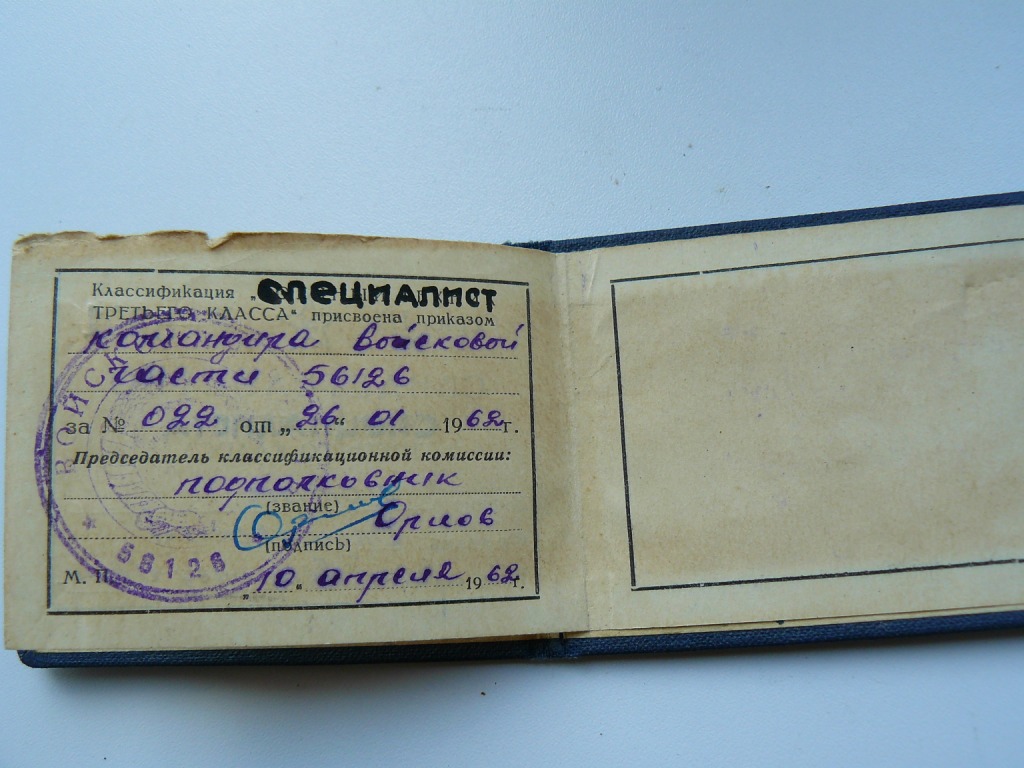 Классификация „СПЕЦИАЛИСТ
ТРЕТЬЕГО КЛАССА“ присвоена приказом
командира войсковой
части 56126
за № 022 от „26“ 01 1962г.
Председатель классификационной комиссии:
подполковник
(звание)
Орлов
(подпись)
М. П. „10“ апреля 1962г.
ВОЙСК
* 56126